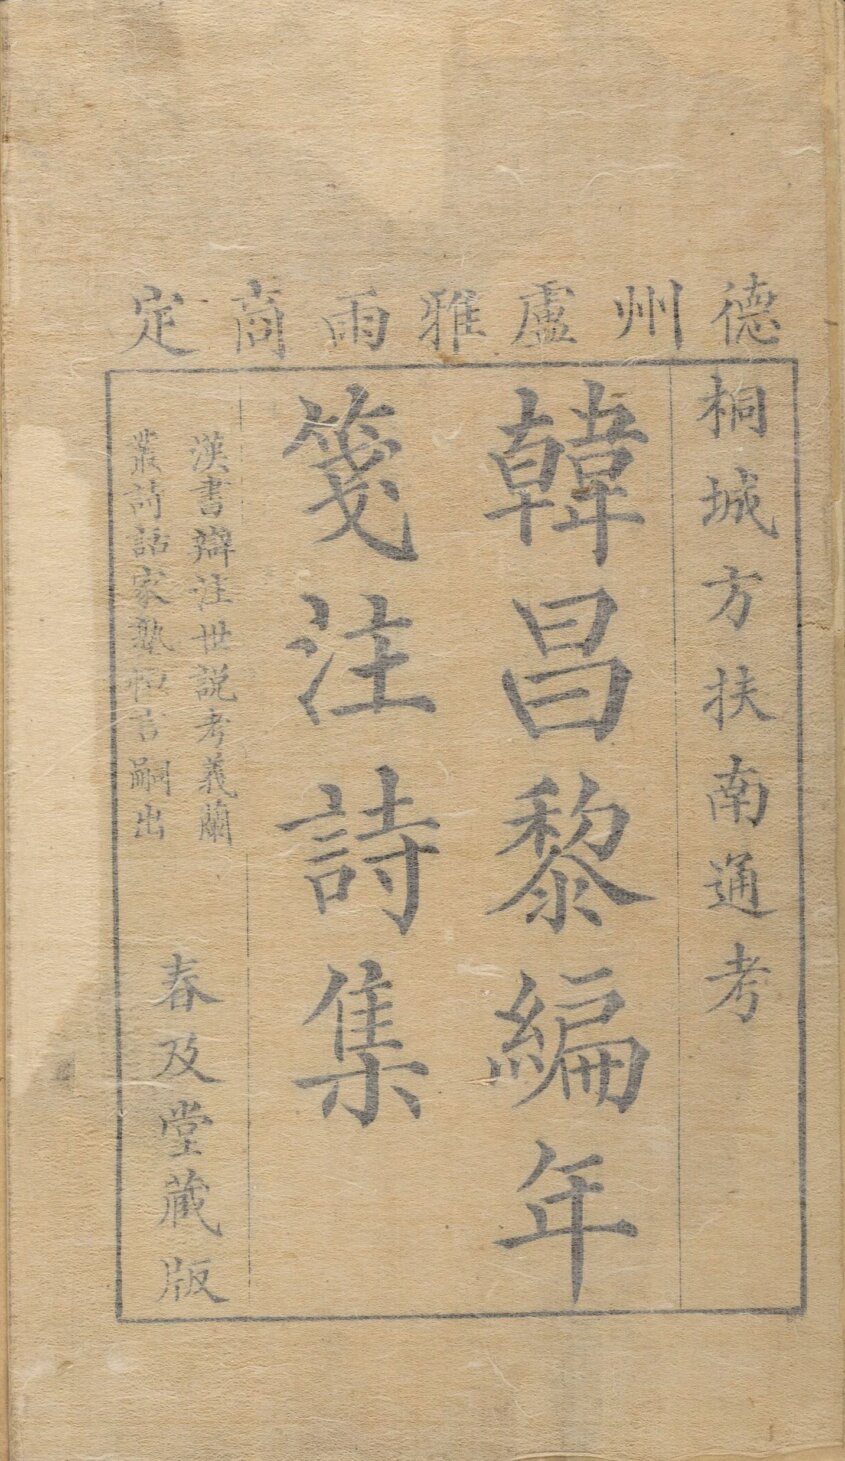 德州盧雅雨商定
桐城方扶南通考
韓昌黎編年
箋注詩集
漢書辯注世説考義蘭
叢詩話家塾恒言嗣出
春及堂藏版